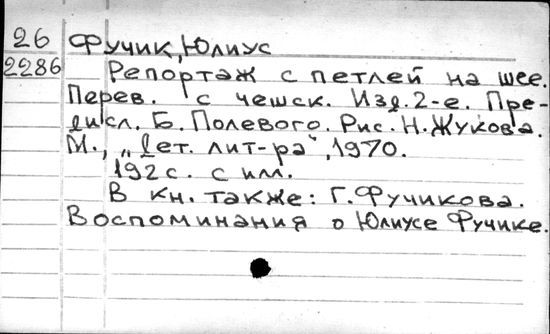 26 Фучик, Юлиус
2286 Репортаж с петлей на шее.
Перев. с чешск. Изд. 2-е. Пре-
дисл. Б. Полевого. Рис. Н. Жукова.
М., „Дет. лит-ра", 1970.
192 с. с илл.
В кн. также: Г. Фучикова.
Воспоминания о Юлиусе Фучике.